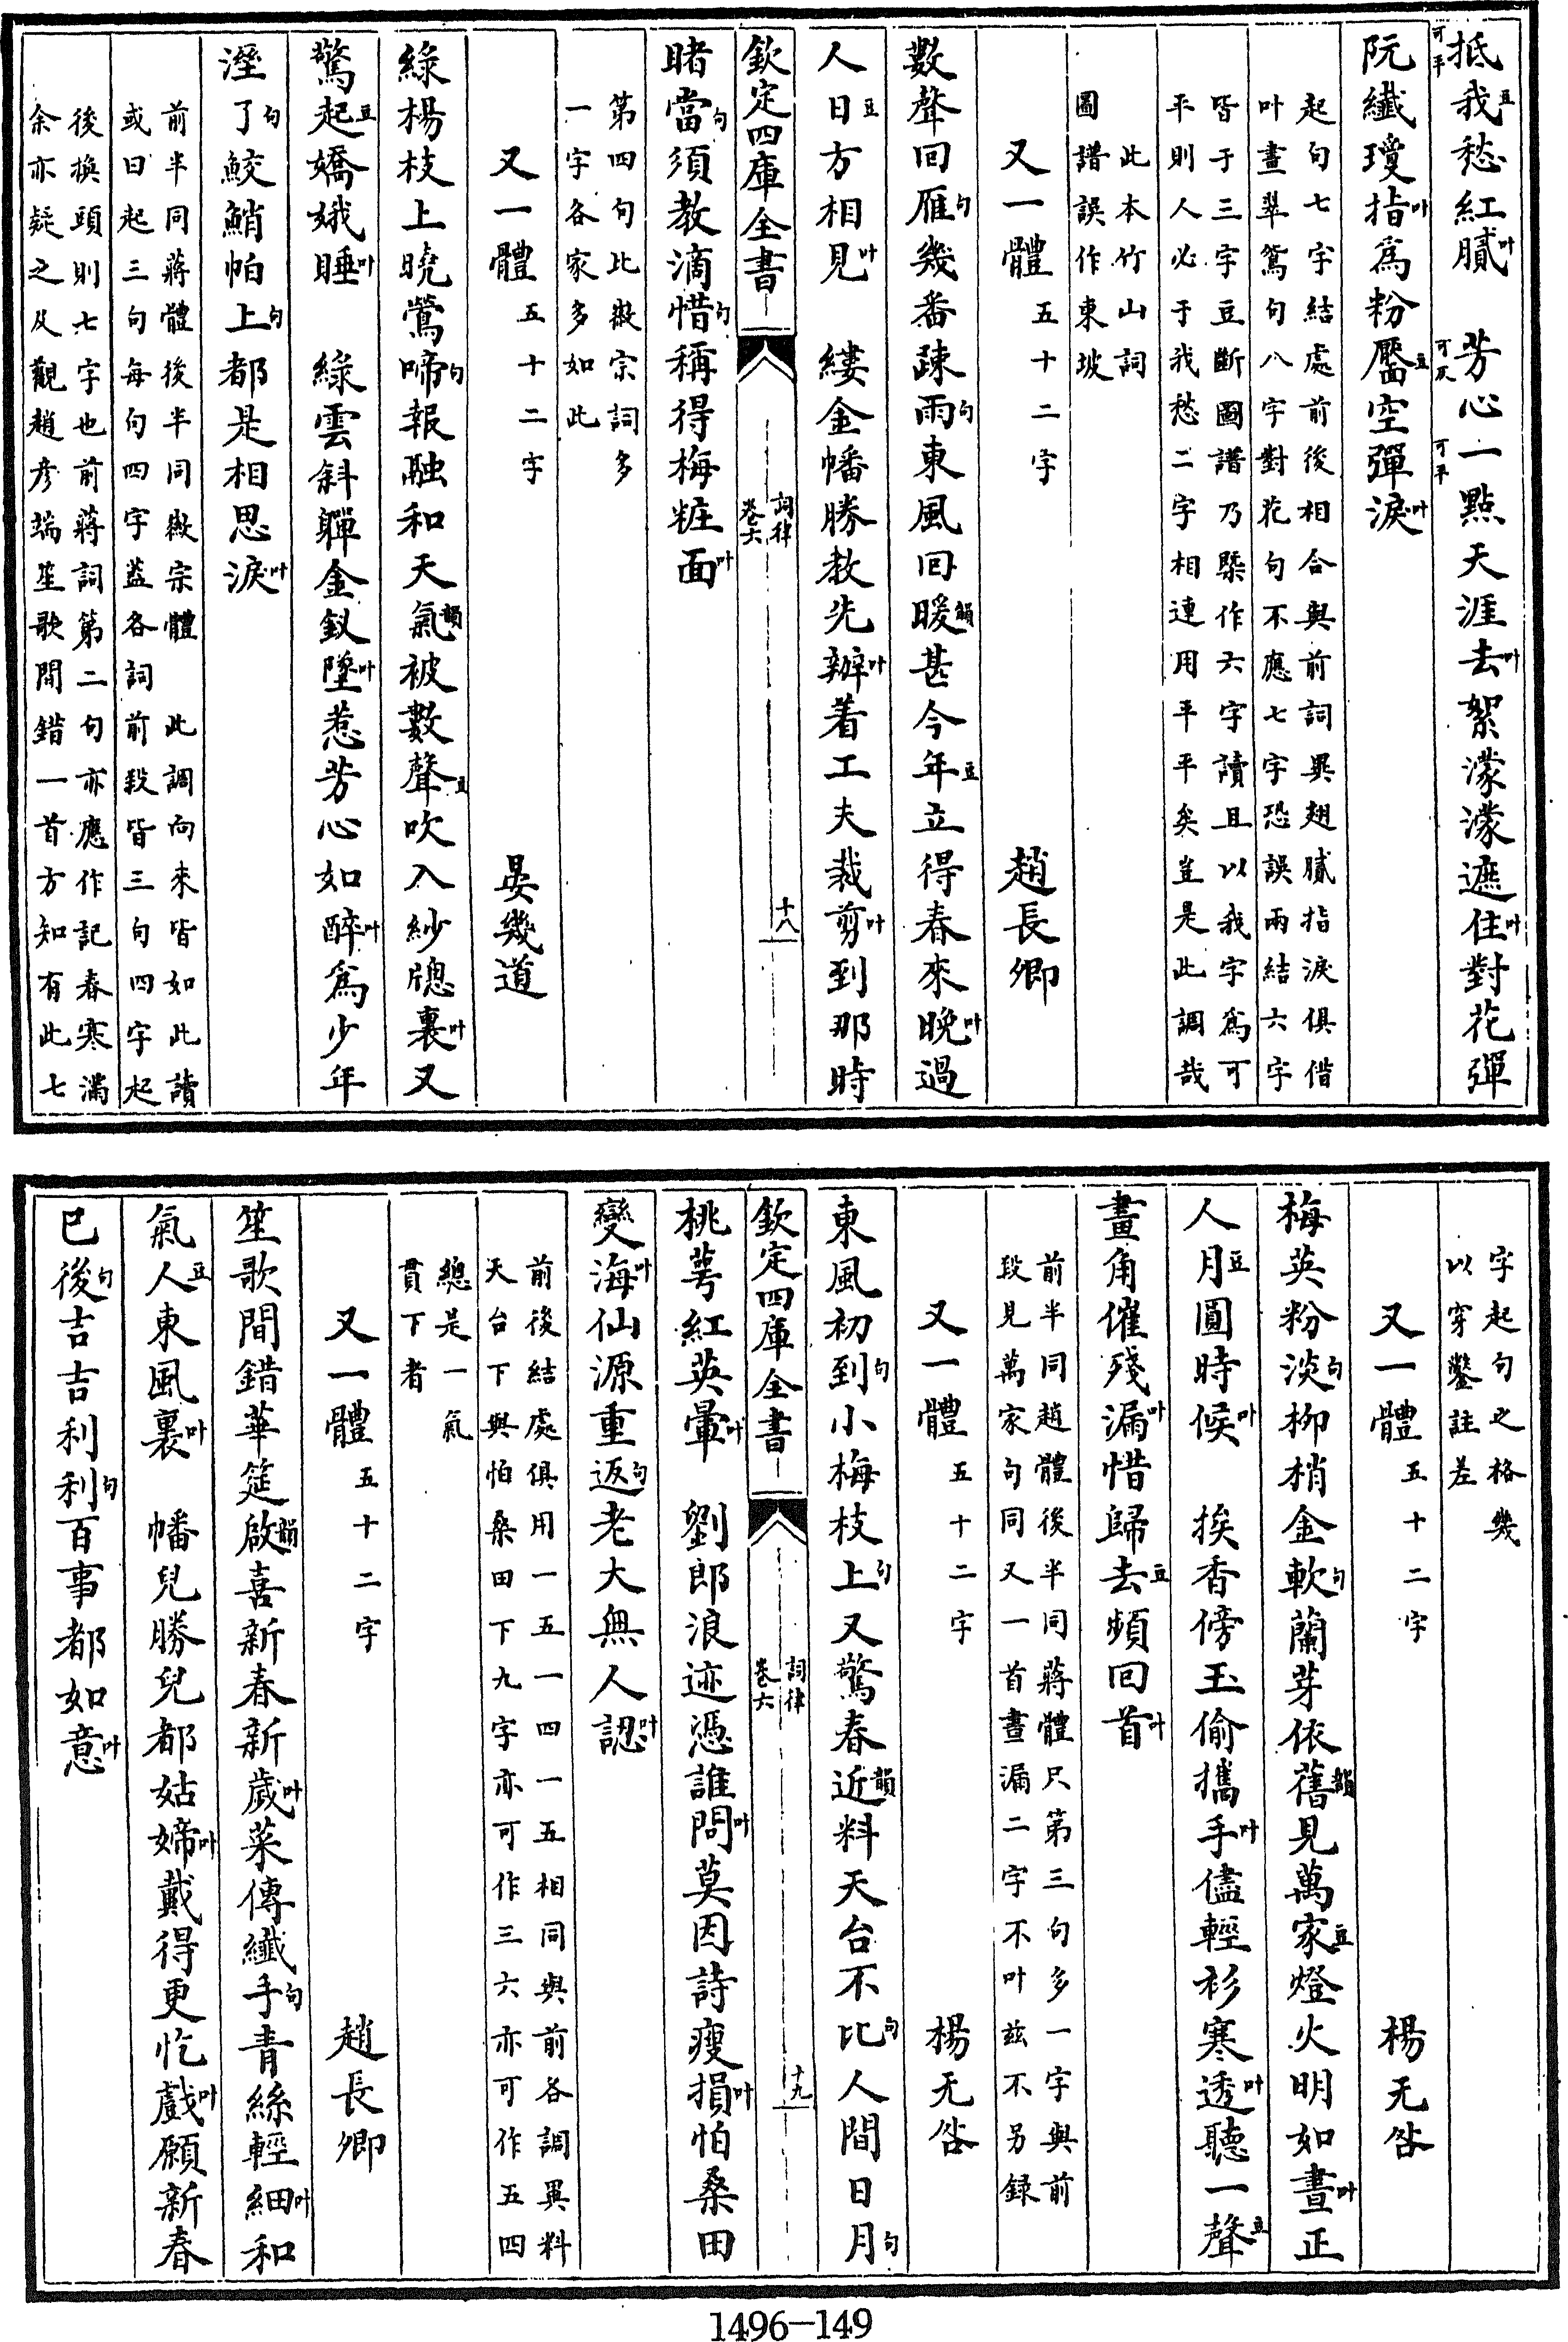 抵我豆愁紅膩叶　芳心一點天涯去叶絮濛濛遮住叶對花彈
可平　可仄　可平
阮纖瓊指叶為粉靨豆空彈淚叶
起句七字結處前後相合與前詞異翅膩指淚俱偕
叶畫翠鴛句八字對花句不應七字恐誤兩結六字
皆于三字豆斷圖譜乃槩作六字讀且以我字為可
平則人必于我愁二字相連用平平平矣豈是此調哉
此本竹山詞
圖譜誤作東坡
又一體　五十二字　趙長卿
數聲回雁句幾番疎雨句東風回暖韻甚今年豆立得春來晚叶過
人日豆方相見叶　縷金幡勝教先辦叶着工夫裁剪叶到那時
欽定四庫全書　詞律　卷六　十八
睹當句須教滴惜句稱得梅粧面叶
第四句比徽宗詞多
一字各家多如此
又一體　五十二字　晏幾道
綠楊枝上曉鶯啼句報融和天氣韻被數聲豆吹入紗牕裏叶又
驚起豆嬌娥睡叶　綠雲斜嚲金釵墜叶惹芳心如醉叶為少年
溼了句鮫鮹帕上句都是相思淚叶
前半同蔣體後半同徽宗體　此調向來皆如此讀
或曰起三句每句四字葢各詞前段皆三句四字起
後換頭則七字也前蔣詞第二句亦應作記春寒滿
余亦疑之及觀趙彥端笙歌間錯一首方知有此七
字起句之格幾
以穿鑿註差
又一體　五十二字　楊无咎
梅英粉淡句柳梢金軟句蘭芽依舊韻見萬家豆燈火明如晝叶正
人月豆圓時候叶　挨香傍玉偷攜手叶儘輕衫寒透叶聽一聲豆
畫角催殘漏叶惜歸去豆頻回首叶
前半同趙體後半同蔣體尺第三句多一字與前
段見萬家句同又一首晝漏二字不叶兹不另録
又一體　五十二字　楊无咎
東風初到句小梅枝上句又驚春近韻料天台不比句人間日月句
欽定四庫全書　詞律　卷六　十九
桃萼紅英暈叶　劉郎浪迹憑誰問叶莫因詩瘦損叶怕桑田
變海叶仙源重返句老大無人認叶
前後結處俱用一五一四一五相同與前各調異料
天台下與怕桑田下九字亦可作三六亦可作五四
總是一氣
貫下者
又一體　五十二字　趙長卿
笙歌間錯華筵啟韻喜新春新歲叶菜傳纖手句青絲輕細叶和
氣人豆東風裏叶　幡兒勝兒都姑媂叶戴得更忔戲叶願新春
已後句吉吉利利句百事都如意叶
1496-149